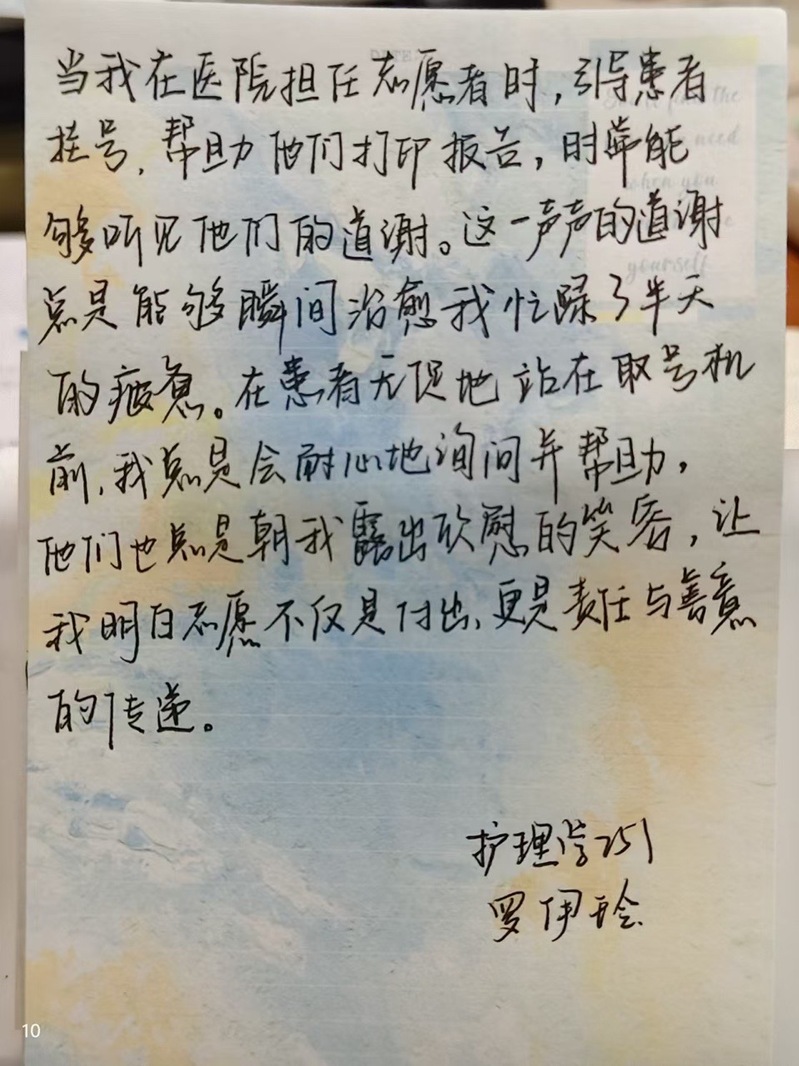 当我在医院担任志愿者时，引导患者
挂号，帮助他们打印报告，时常能
够听见他们的道谢。这一声声的道谢
总是能够瞬间治愈我忙碌了半天
的疲惫。在患者无促地站在取号机
前，我总是会耐心地询问并帮助，
他们也总是朝我露出欣慰的笑容，让
我明白志愿不仅是付出、更是责任与善意
的传递。
护理学251
罗伊玲
10